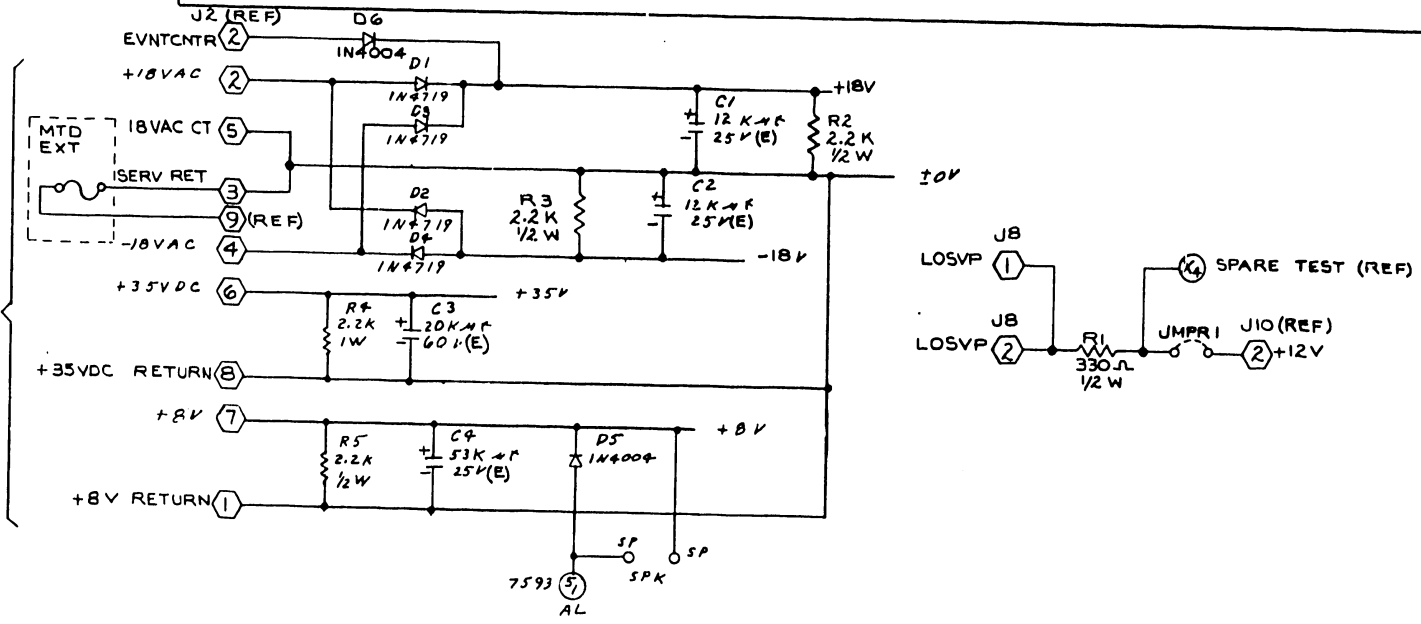 J2 (REF)
D6
EVNTCNTR 2
1N4004
+18VAC 2
D1
1N4719
+18V
D3
1N4719
C1
12 K μf
25V(E)
R2
2.2K
1/2 W
18VAC CT 5
MTD
EXT
SERV RET 3
9 (REF)
±0V
D2
1N4719
D4
1N4719
R3
2.2K
1/2 W
C2
12K μf
25V(E)
-18VAC 4
-18V
+35VDC 6
+35V
R4
2.2K
1W
C3
20K μf
60V(E)
+35VDC RETURN 8
+8V 7
+8V
R5
2.2K
1/2 W
C4
53K μf
25V(E)
D5
1N4004
+8V RETURN 1
SP
SP
SPK
7593
AL
J8
LOSVP 1
SPARE TEST (REF)
J8
LOSVP 2
R1
330Ω
1/2 W
JMPR1
J10 (REF)
2 +12V